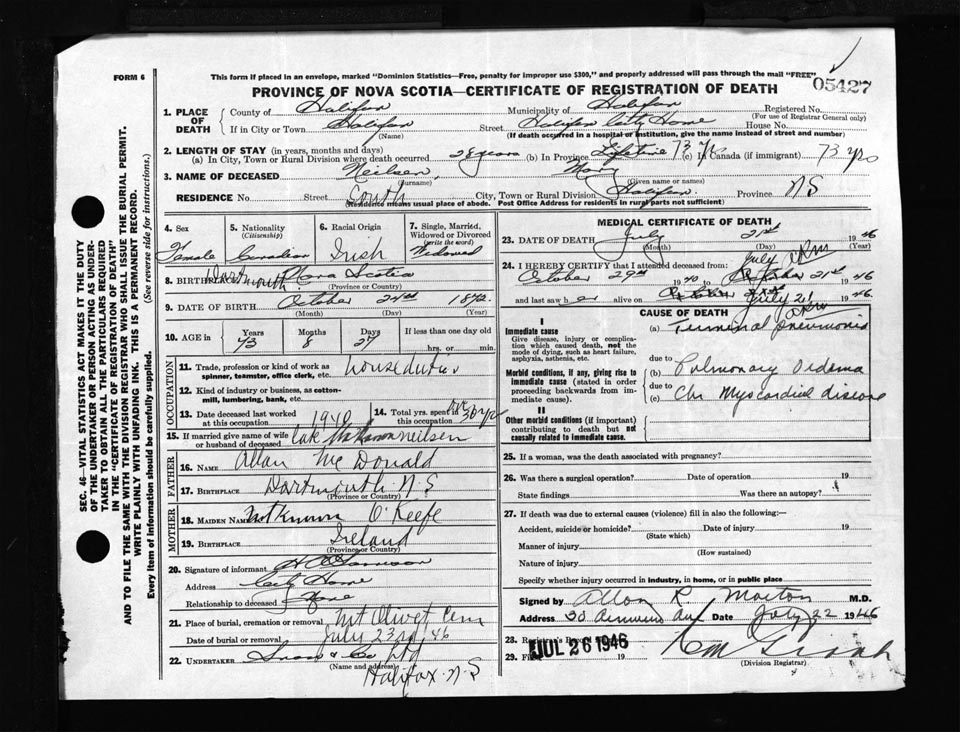 FORM 6
This form if placed in an envelope, marked "Dominion Statistics—Free, penalty for improper use $300," and properly addressed will pass through the mail "FREE"
05427
PROVINCE OF NOVA SCOTIA—CERTIFICATE OF REGISTRATION OF DEATH
1. PLACE OF DEATH
County of Halifax Municipality of Halifax Registered No.
(For use of Registrar General only)
If in City or Town Halifax Street Halifax City Home House No.
(Name) (If death occurred in a hospital or institution, give the name instead of street and number)
2. LENGTH OF STAY (in years, months and days)
(a) In City, Town or Rural Division where death occurred 28 years (b) In Province Lifetime 73 yrs (c) In Canada (if immigrant) 73 yrs
3. NAME OF DECEASED Neilsen, Mary
(Surname) (Given name or names)
RESIDENCE No. Street South City, Town or Rural Division Halifax Province N S
(Residence means usual place of abode. Post Office Address for residents in rural parts not sufficient)
SEC. 46—VITAL STATISTICS ACT MAKES IT THE DUTY
OF THE UNDERTAKER OR PERSON ACTING AS UNDER-
TAKER TO OBTAIN ALL THE PARTICULARS REQUIRED
IN THE "CERTIFICATE OF REGISTRATION OF DEATH"
AND TO FILE THE SAME WITH THE DIVISION REGISTRAR WHO SHALL ISSUE THE BURIAL PERMIT.
WRITE PLAINLY WITH UNFADING INK. THIS IS A PERMANENT RECORD.
Every item of information should be carefully supplied. (See reverse side for instructions.)
4. Sex 5. Nationality (Citizenship) 6. Racial Origin 7. Single, Married, Widowed or Divorced (write the word)
Female Canadian Irish Widowed
8. BIRTHPLACE Dartmouth Nova Scotia
(Province or Country)
9. DATE OF BIRTH October 24th 1872
(Month) (Day) (Year)
10. AGE in Years Months Days If less than one day old
73 8 27 hrs. or min.
OCCUPATION
11. Trade, profession or kind of work as spinner, teamster, office clerk, etc. house duties
12. Kind of industry or business, as cotton-mill, lumbering, bank, etc.
13. Date deceased last worked at this occupation 1940 14. Total yrs. spent in this occupation 50 yrs
15. If married give name of wife or husband of deceased late Neilsen
FATHER
16. NAME Allan McDonald
17. BIRTHPLACE Dartmouth N.S
(Province or Country)
MOTHER
18. MAIDEN NAME Not Known O'Keefe
19. BIRTHPLACE Ireland
(Province or Country)
20. Signature of informant
Address City Home
Relationship to deceased None
21. Place of burial, cremation or removal Mt Olivet Cem
Date of burial or removal July 23rd, 46
22. UNDERTAKER Snow & Co Ltd
(Name and address)
Halifax N.S
MEDICAL CERTIFICATE OF DEATH
23. DATE OF DEATH July 21st 1946
(Month) (Day) (Year)
24. I HEREBY CERTIFY that I attended deceased from:
October 29th 1940 to July 21st 1946 ARM
and last saw her alive on July 21 1946 ARM
CAUSE OF DEATH
I
Immediate cause
Give disease, injury or complication which caused death, not the mode of dying, such as heart failure, asphyxia, asthenia, etc.
(a) Terminal Pneumonia
due to
Morbid conditions, if any, giving rise to immediate cause (stated in order proceeding backwards from immediate cause).
(b) Pulmonary Oedema
due to
(c) Chr Myocardial disease
II
Other morbid conditions (if important) contributing to death but not causally related to immediate cause.
25. If a woman, was the death associated with pregnancy?
26. Was there a surgical operation? Date of operation 19
State findings Was there an autopsy?
27. If death was due to external causes (violence) fill in also the following:—
Accident, suicide or homicide? Date of injury 19
(State which)
Manner of injury
(How sustained)
Nature of injury
Specify whether injury occurred in industry, in home, or in public place
Signed by Allan R. Morton M.D.
Address Date July 22 1946
28. Registrar's Record Number
JUL 26 1946
29. 19
(Division Registrar)